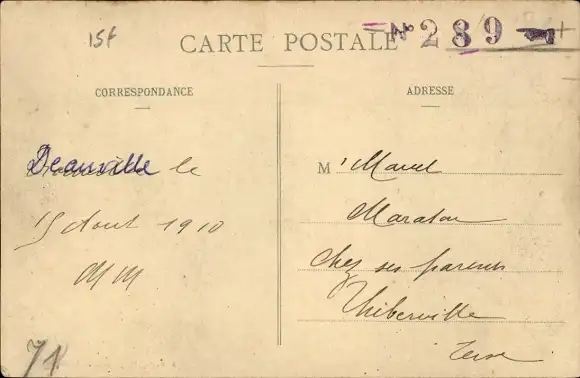 15f
CARTE POSTALE
No 289
CORRESPONDANCE
ADRESSE
Deauville le
15 Aout 1910
MM
M r Marcel
chez ses parents
Thiberville
71